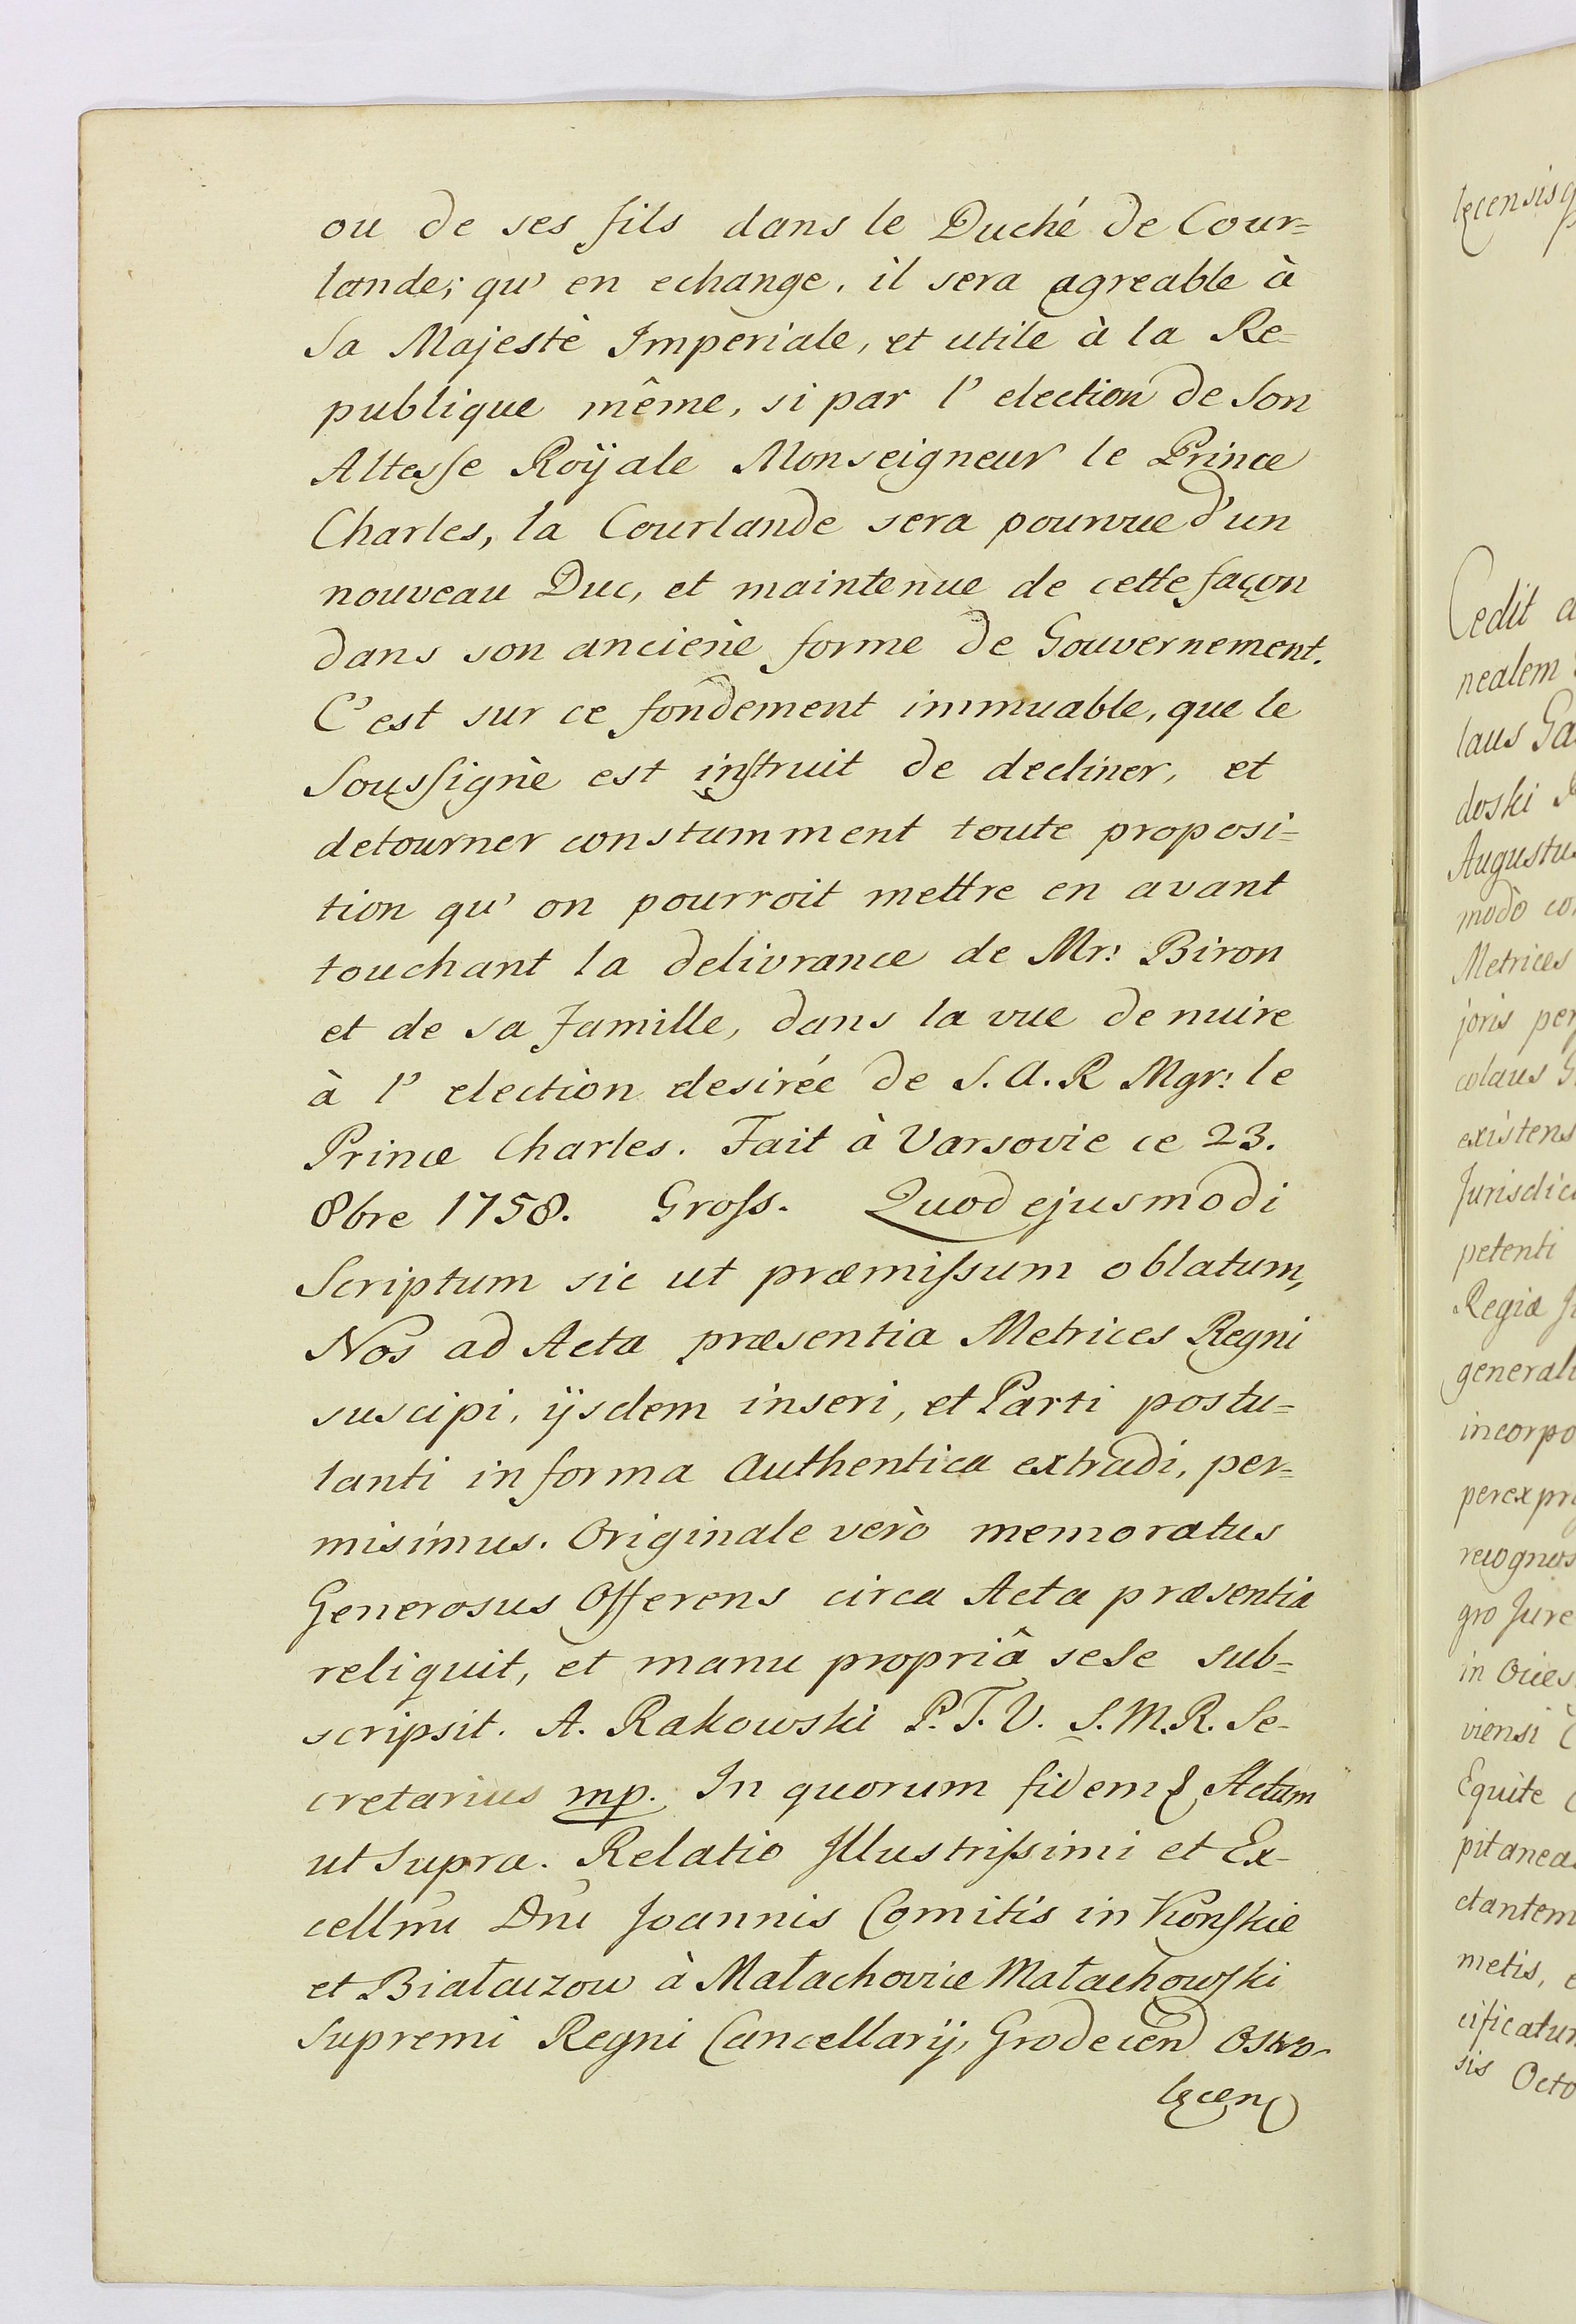 ou de ses fils dans le Duché de Cour=
lande; qu' en echange, il sera agreable à
Sa Majestè Imperiale, et utile à la Re=
publique même, si par l' election de Son
Altesse Roÿale Monseigneur le Prince
Charles, la Courlande sera pourvue d'un
nouveau Duc, et maintenue de cette façon
dans son ancien̄e forme de Gouvernement.
C'est sur ce fondement immuable, que le
Soussignè est instruit de decliner, et
detourner constamment toute proposi=
tion qu' on pourroit mettre en avant
touchant la delivrance de Mr: Biron
et de sa famille, dans la vue de nuire
à l' election desirée de S. A. R Mgr: le
Prince Charles. Fait à Varsovie ce 23.
8bre 1758. Gross. Quod ejusmodi
Scriptum sic ut præmissum oblatum,
Nos ad Acta præsentia Metrices Regni
suscipi, ijsdem inseri, et Parti postu=
lanti in forma Authentica extradi, per=
misimus. Originale verò memoratus
Generosus Offerens circa Acta præsentia
reliquit, et manu propriâ sese sub=
scripsit. A. Rakowski P. T. V. S. M. R. Se-
cretarius mp. In quorum fidem Actum
ut Supra. Relatio Illustrissimi et Ex-
cellm̄i Dn̄i Joannis Comitis in Końskie
et Białaczow à Małachovice Małachowski
Supremi Regni Cancellarij, Grodecen̄ Ostro-
lęcen
lęcensisq
Cedit a
nealem
laus Ga
doski
Augustus
modò co
Metrices
joris per
colaus G
existens
Jurisdic
petenti
Regiæ
general
incorpo
perexpr
recognos
gro Jure
in
viensi
Equite
pitanea
ctantem
metis, e
cificatum
sis Octo